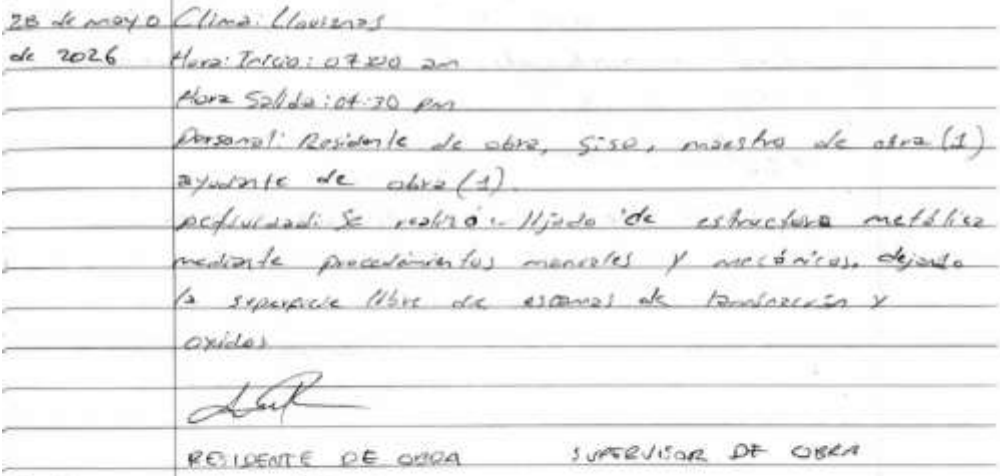 28 de mayo Clima: Lloviznas
de 2026 Hora: Inicio: 07:00 am
Hora Salida: 04:30 pm
Personal: Residente de obra, Siso, maestro de obra (1)
ayudante de obra (1).
Actividad: Se realizó lijado de estructura metálica
mediante procedimientos manuales y mecánicos, dejando
la superficie libre de escamas de laminación y
oxidos
RESIDENTE DE OBRA SUPERVISOR DE OBRA